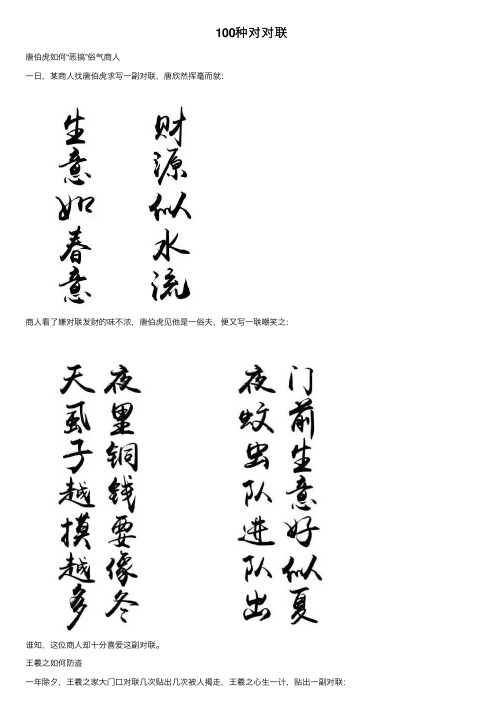 100种对对联
唐伯虎如何“恶搞”俗气商人
一日，某商人找唐伯虎求写一副对联，唐欣然挥毫而就：
生意如春意
财源似水流
商人看了嫌对联发财的味不浓，唐伯虎见他是一俗夫，便又写一联嘲笑之：
门前生意好似夏
夜蚊虫队进队出
夜里铜钱要像冬
天虱子越摸越多
谁知，这位商人却十分喜爱这副对联。
王羲之如何防盗
一年除夕，王羲之家大门口对联几次贴出几次被人揭走，王羲之心生一计，贴出一副对联：